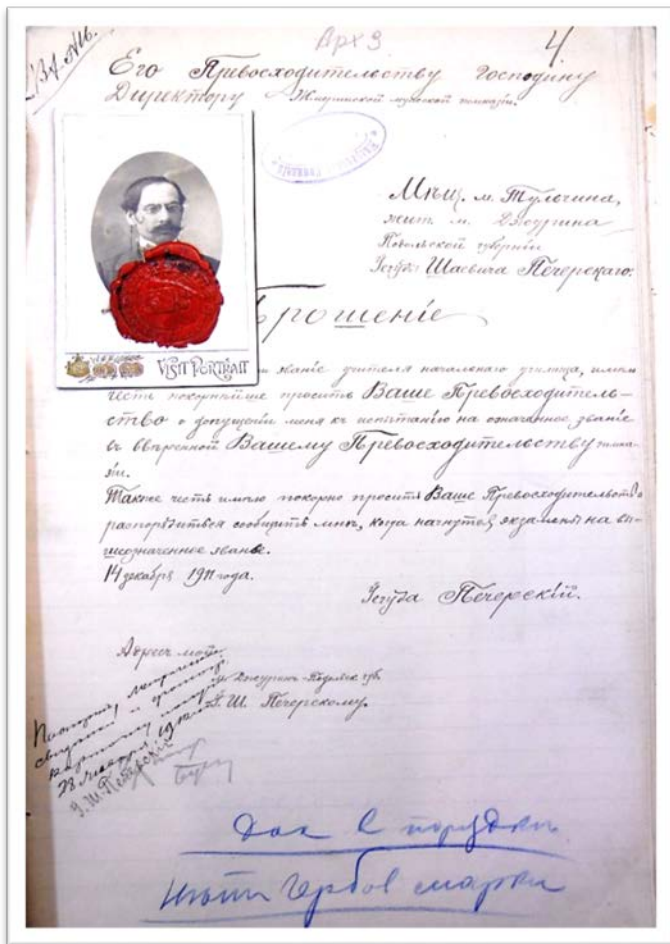 4
Его Превосходительству Господину
Директору Жмеринской мужской гимназіи.
Мѣщ. м. Тульчина,
жит. м. Джурина
Подольской губерніи
Шаевича Печерскаго.
Прошеніе
VISIT PORTRAIT
званіе учителя начальнаго училища, имѣю
честь покорнѣйше просить Ваше Превосходитель-
ство о допущеніи меня къ испытанію на означенное званіе
въ ввѣренной Вашему Превосходительству гимна-
зіи.
Также честь имѣю покорно просить Ваше Превосходительство
распорядиться сообщить мнѣ, когда начнутся экзамены на вы-
шеозначенное званіе.
14 декабря 1911 года.
Печерскій.
Адресъ мой:
м. Джуринъ Подольск. губ.
Ш. Печерскому.
28 января
Печерскій
нѣтъ гербов марки